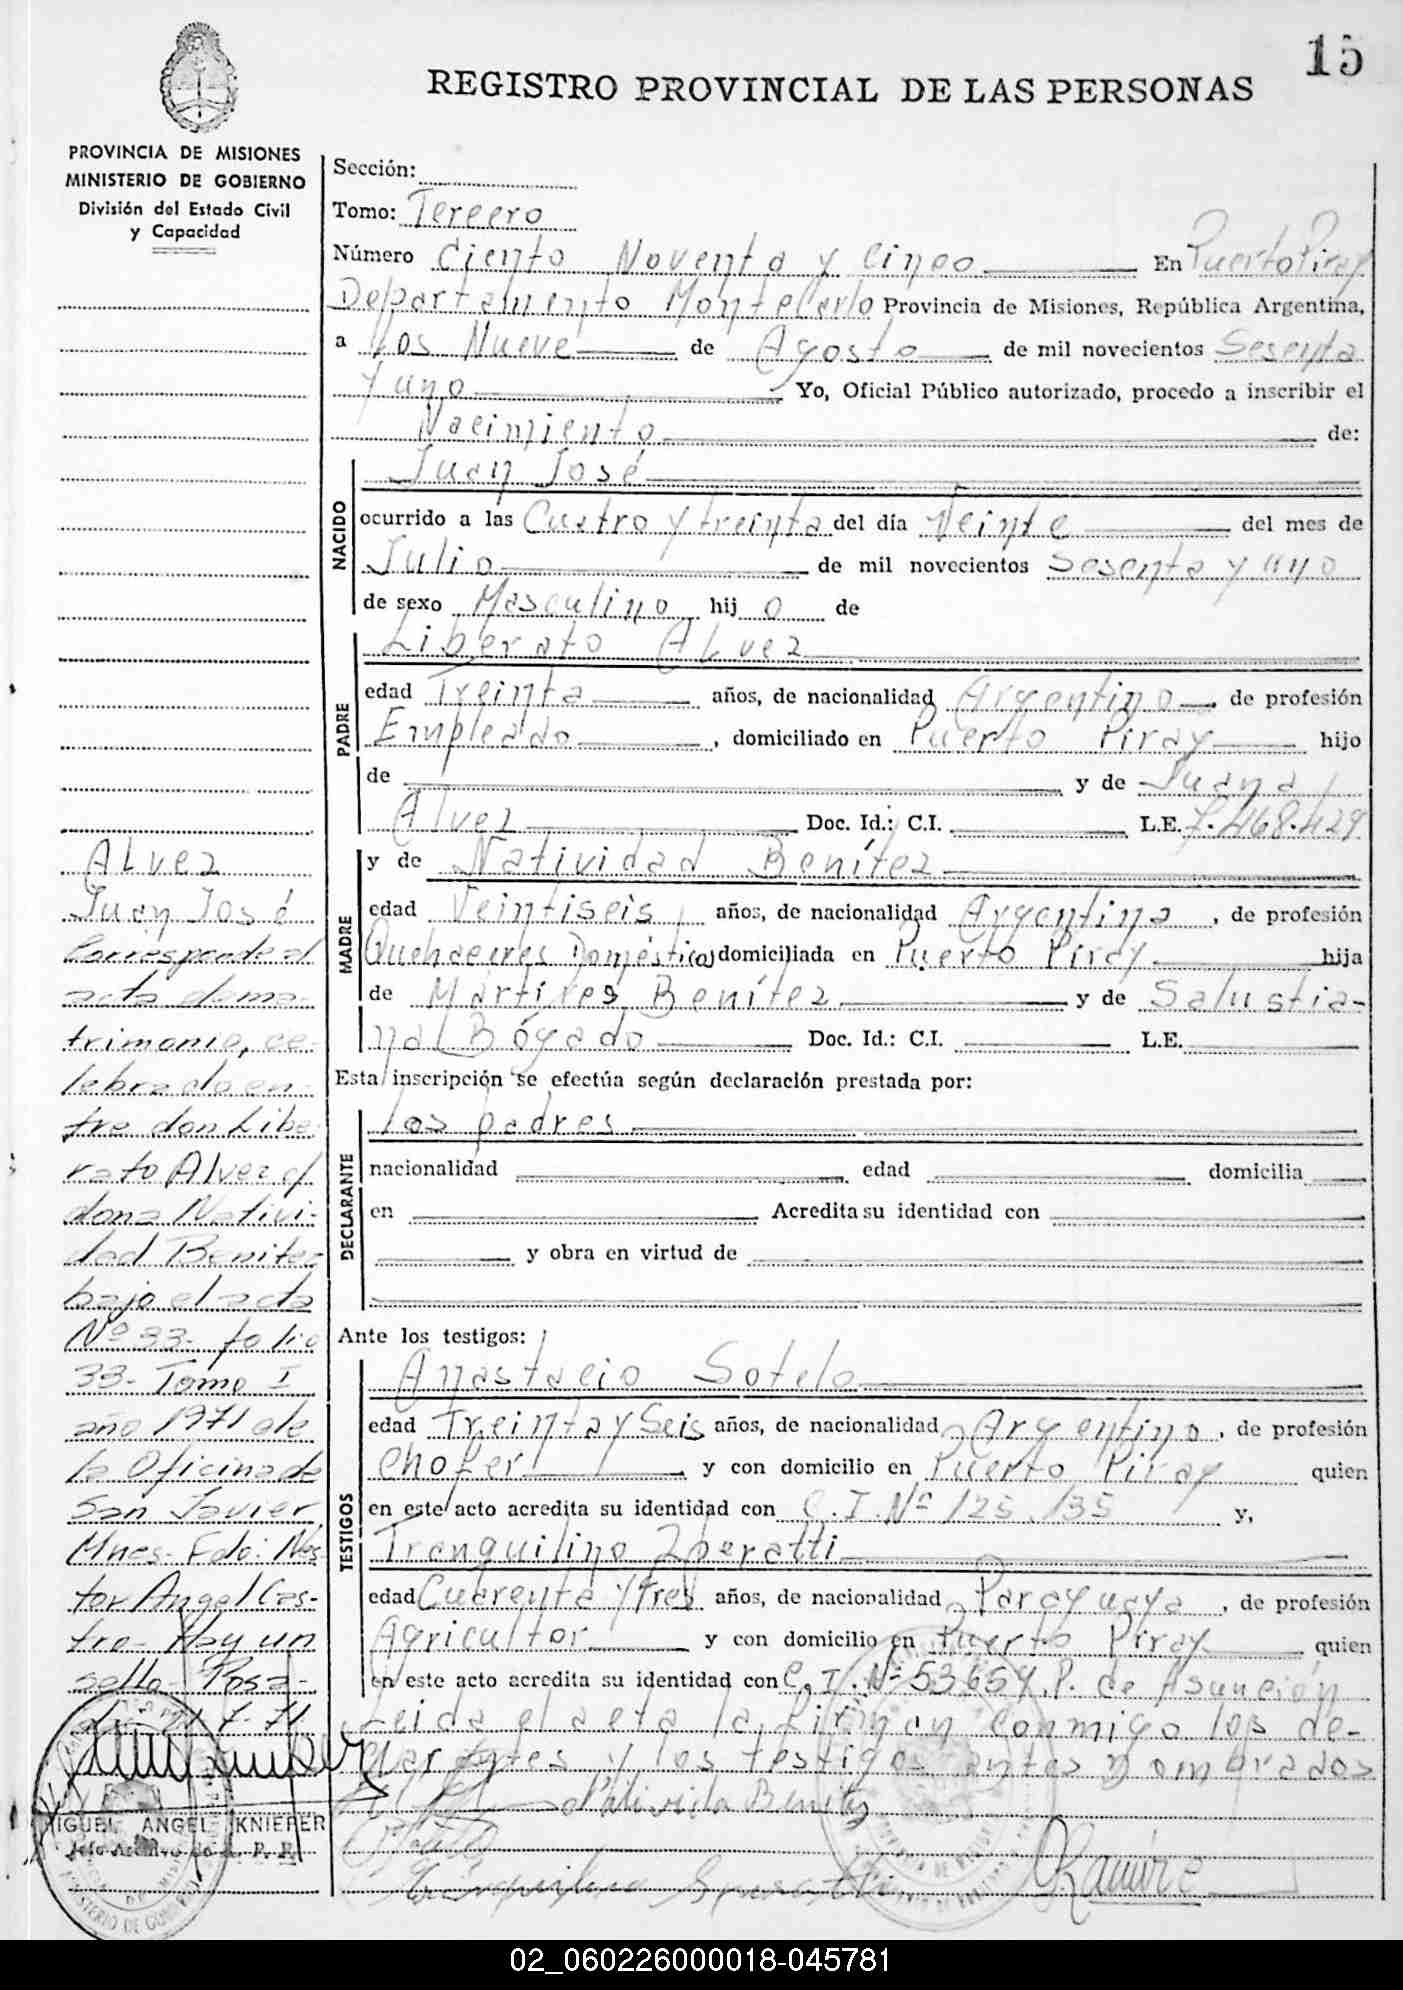 15
REGISTRO PROVINCIAL DE LAS PERSONAS
PROVINCIA DE MISIONES
MINISTERIO DE GOBIERNO
División del Estado Civil
y Capacidad
Sección:
Tomo: Tercero
Número Ciento Noventa y Cinco En Puerto Piray
Departamento Montecarlo Provincia de Misiones, República Argentina,
a los Nueve de Agosto de mil novecientos Sesenta
y uno Yo, Oficial Público autorizado, procedo a inscribir el
Nacimiento de:
NACIDO
Juan José
ocurrido a las Cuatro y treinta del día Veinte del mes de
Julio de mil novecientos Sesenta y uno
de sexo Masculino hij o de
PADRE
Liberato Alvez
edad Treinta años, de nacionalidad Argentino de profesión
Empleado, domiciliado en Puerto Piray hijo
de y de Juana
Alvez Doc. Id.: C.I. L.E. 7.468.429
MADRE
y de Natividad Benítez
edad Veintiseis años, de nacionalidad Argentina, de profesión
Quehaceres Doméstico) domiciliada en Puerto Piray hija
de Martíres Benítez y de Salustia-
na Bógado Doc. Id.: C.I. L.E.
Esta inscripción se efectúa según declaración prestada por:
DECLARANTE
los padres
nacionalidad edad domicilia
en Acredita su identidad con
y obra en virtud de
Ante los testigos:
TESTIGOS
Anastacio Sotelo
edad Treinta y Seis años, de nacionalidad Argentino, de profesión
Chofer y con domicilio en Puerto Piray quien
en este acto acredita su identidad con C.I.Nº 125.135 y,
Tranquilino Iperatti
edad Cuarenta y Tres años, de nacionalidad Paraguaya, de profesión
Agricultor y con domicilio en Puerto Piray quien
en este acto acredita su identidad con C.I.Nº 53657.P. de Asunción
Leida el acta la firman conmigo los de-
clarantes y los testigos antes nombrados
Natividad Benitez
Ramírez
Alvez
Juan José
Corresponde al
acta de ma-
trimonio, ce-
lebrado en-
tre don Libe-
rato Alvez y
dona Nativi-
dad Benitez
bajo el acta
Nº 33- folio
33- Tomo I
año 1971 de
la Oficina de
San Javier
Mnes- Fdo: Nes-
tor Angel Cas-
tro- Hay un
sello- Posa-
MIGUEL ANGEL KNIEPER
02_060226000018-045781